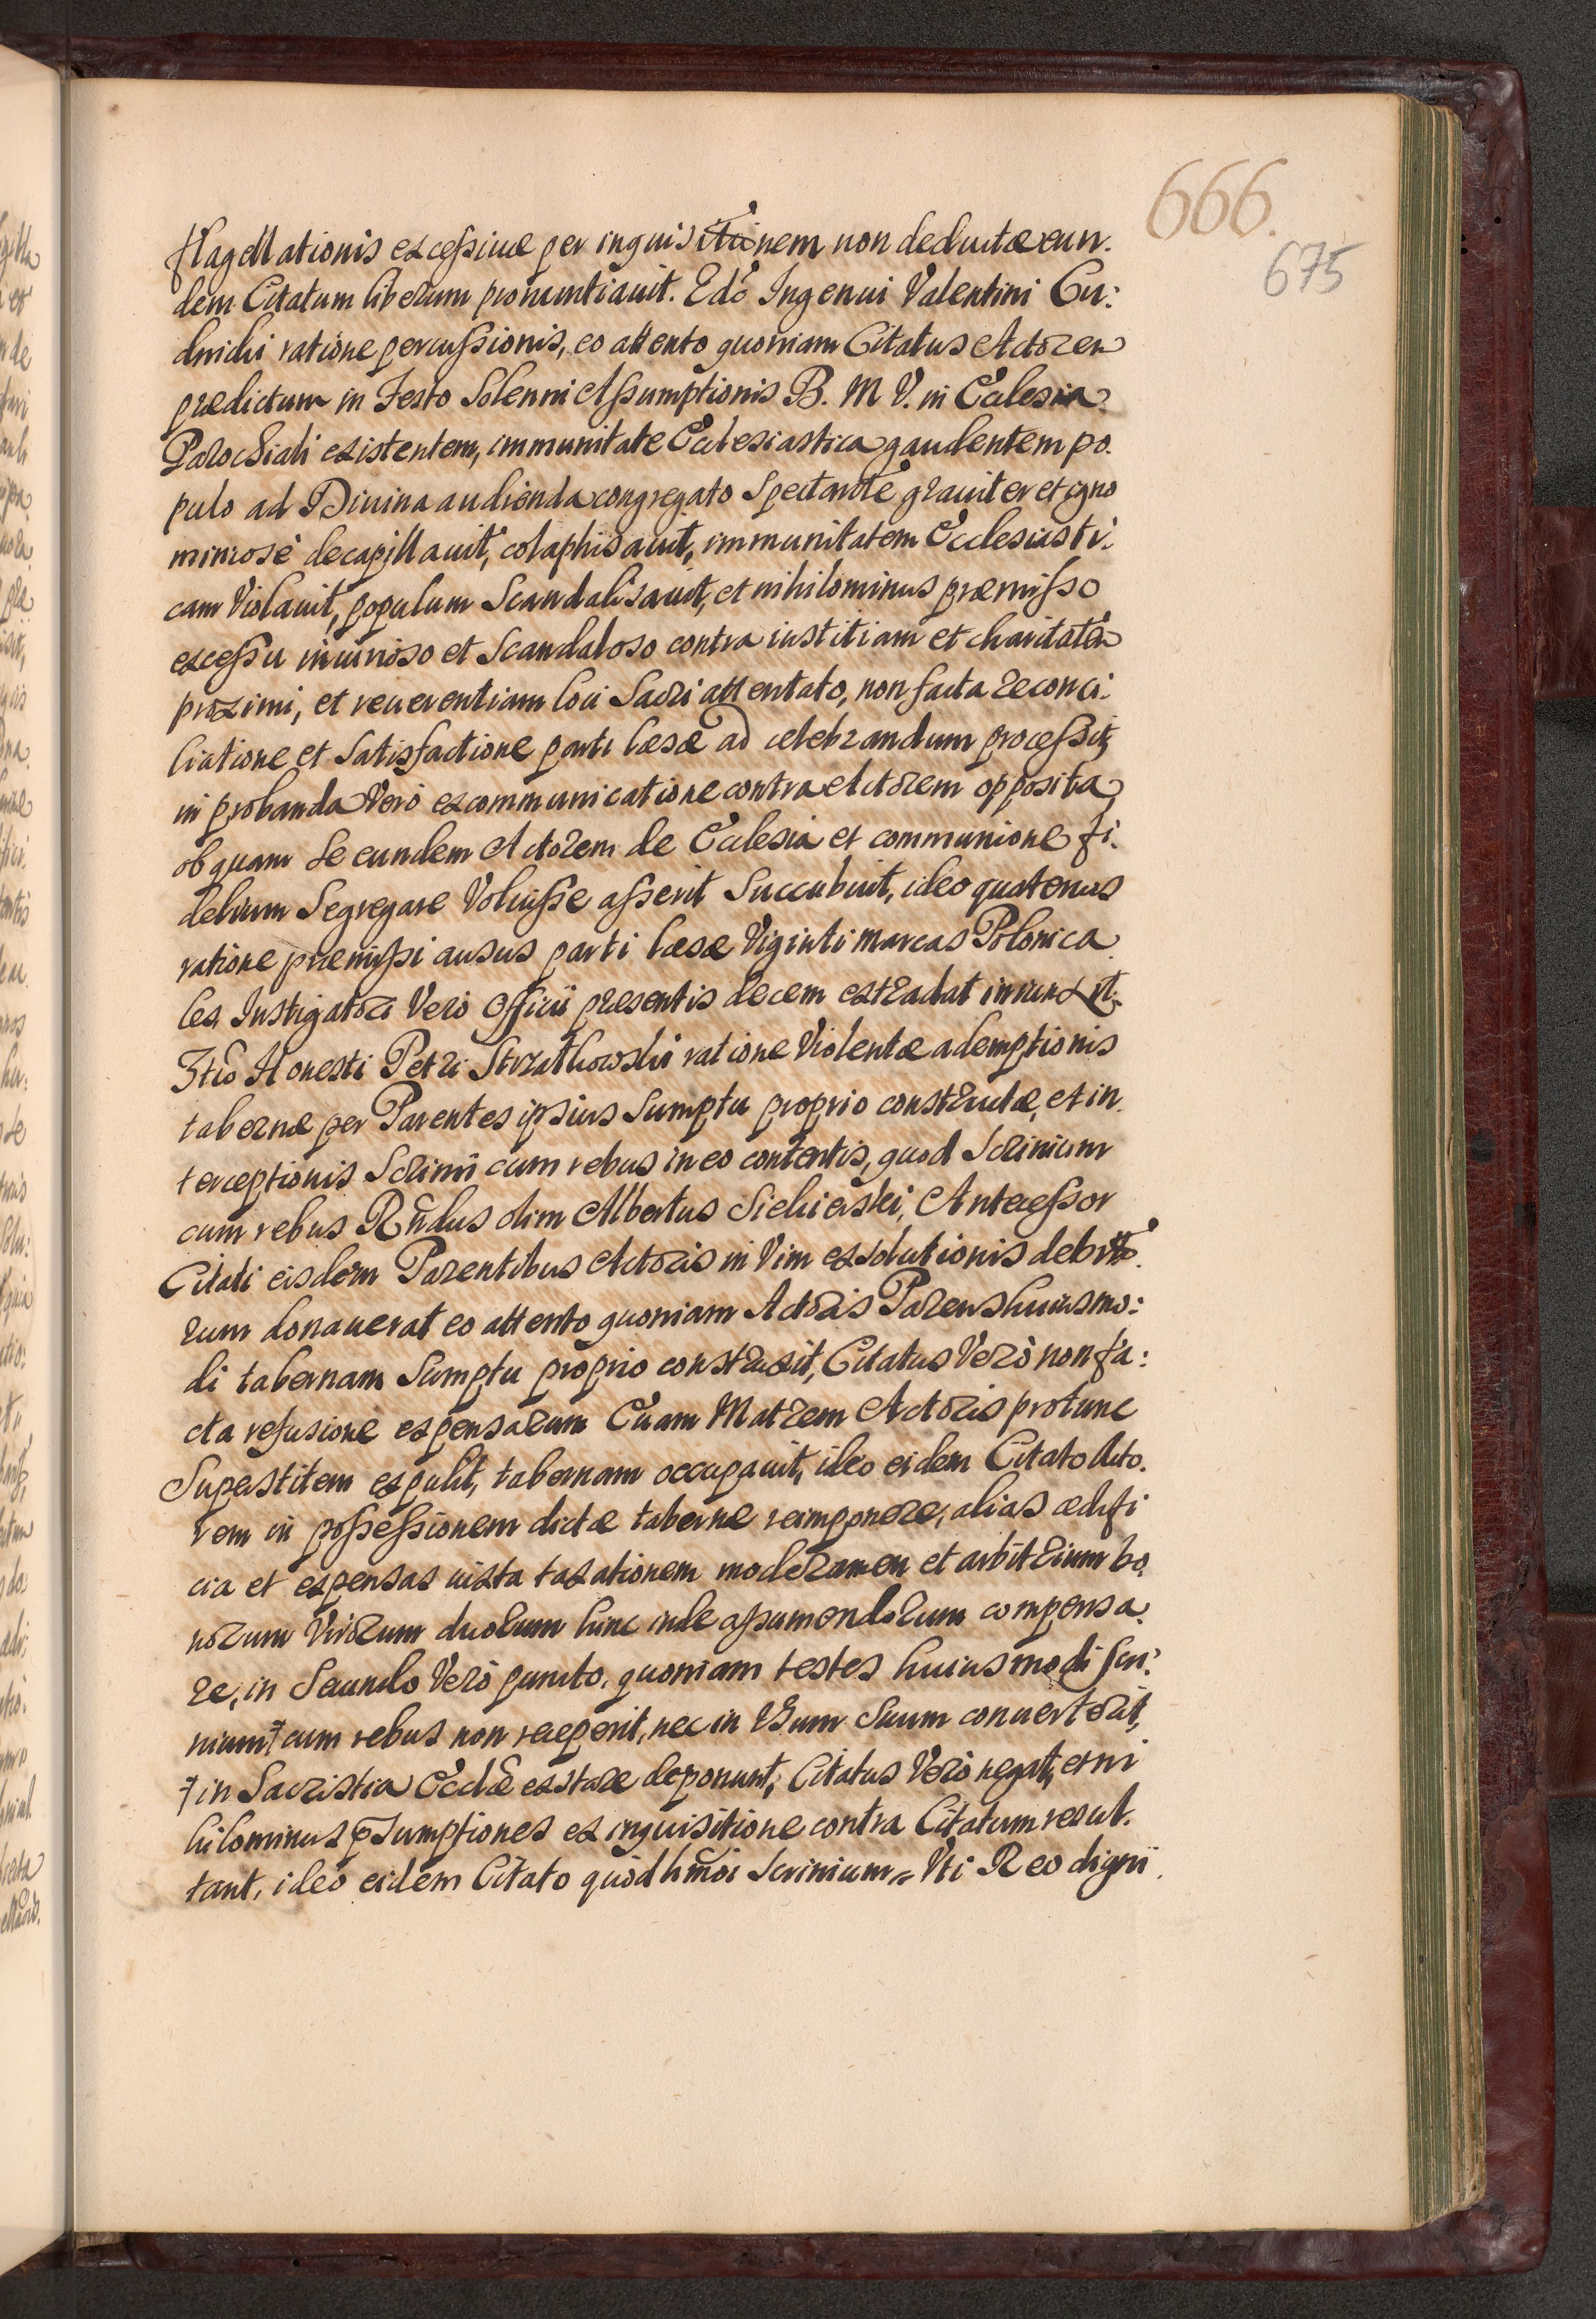 666.
675
flagellationis excessiuæ per inquisitionem non deductæ eun.
dem Citatum liberum pronuntiauit. Ingenui Valentini Cu:
dnicki ratione percussionis, eo attento quoniam Citatus Actorem
prædictum in Festo Solenni Assumptionis B. M V. in Ecclesia
Parochiali existentem, immunitate Ecclesiastica gaudentem po.
pulo ad Diuina audienda congregato Spectante grauiter et igno
miniose decapillauit, colaphisauit, immunitatem Ecclesiasti:
cam Violauit, populum Scandalisauit, et nihilominus præmisso
excessu iniurioso et Scandaloso contra iustitiam et charitatem
proximi, et reuerentiam loci Sacri attentato, non facta reconci:
liatione et Satisfactione parti læsæ ad celebrandum processit,
in probanda Vero excommunicatione contra Actorem opposita
ob quam Se eundem Actorem de Ecclesia et communione fi:
delium Segregare Voluisse asserit Succubuit, ideo quatenus
ratione præmissi ausus parti læsæ Viginti marcas Polonica
les Instigatori Vero Officii præsentis decem extradat iniunxit.
Itẽ Honesti Petri Strzałkowski ratione Violentæ ademptionis
tabernæ per Parentes ipsius Sumptu proprio constructæ, et in
terceptionis Scrinii cum rebus in eo contentis, quod Scrinium
cum rebus Rñdus olim Albertus Sichierski, Antecessor
Citati eisdem Parentibus Actoris in Vim exsolutionis debito.
rum donauerat eo attento quoniam Actoris Parens huiusmo:
di tabernam Sumptu proprio construxit, Citatus Vero non fa:
cta refusione expensarum Etiam Matrem Actoris protunc
Superstitem expulit, tabernam occupauit, ideo eidem Citato Acto.
rem in possessionem dictæ tabernæ reimponere, alias ædifi
cia et expensas iuxta taxationem moderamen et arbitrium bo
norum Virorum duorum hinc inde assumendorum compensa
re, in Secundo Vero puncto, quoniam testes huiusmodi Scri:
nium‡ cum rebus non receperit, nec in Vsum Suum conuerterit,
‡ in Sacristia Eccłæ exstare deponunt, Citatus Vero negat, et ni
hilominus p̄sumptiones ex inquisitione contra Citatum resul.
tant, ideo eidem Citato quod hm̃oi Scrinium Vti Reo digni.